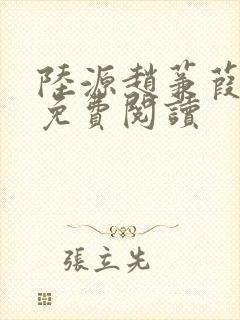 陸源趙蒹葭
免費閱讀
張立先